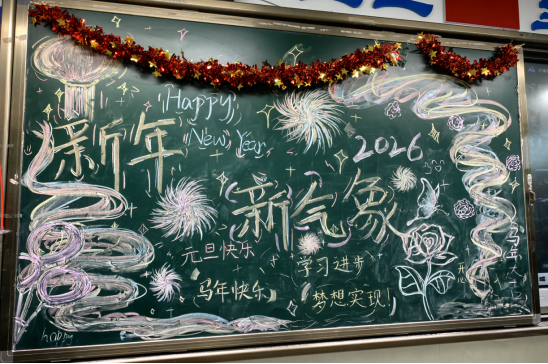 Happy
New Year
新年
2026
新气象
元旦快乐
学习进步
马年快乐
梦想实现!
马年大
happy